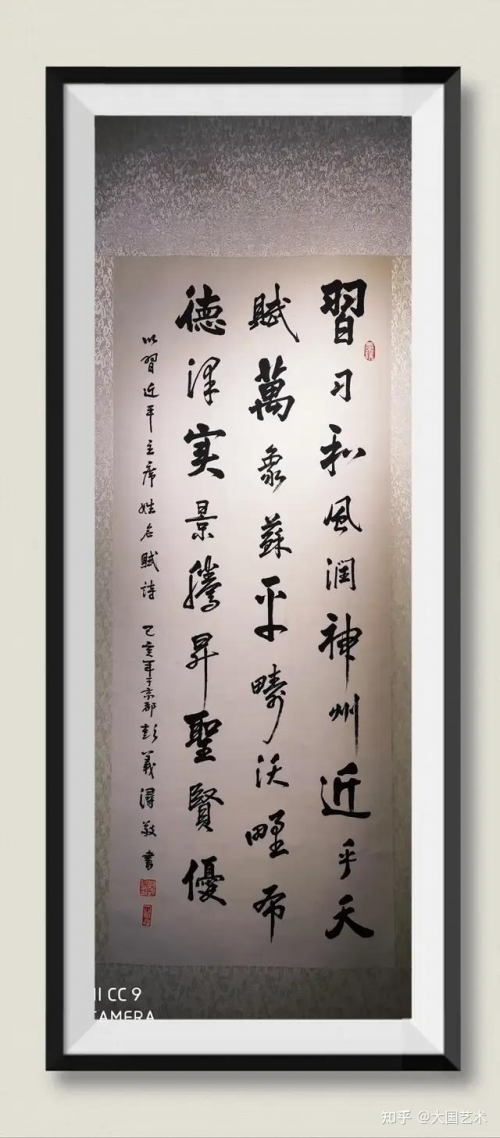 習习和風润神州近乎天
賦萬象蘇平疇沃野布
德泽实景騰昇聖賢優
以習近平主席姓名賦詩 乙亥年于京都彭義潯敬書
CC 9
CAMERA
知乎 @大国艺术